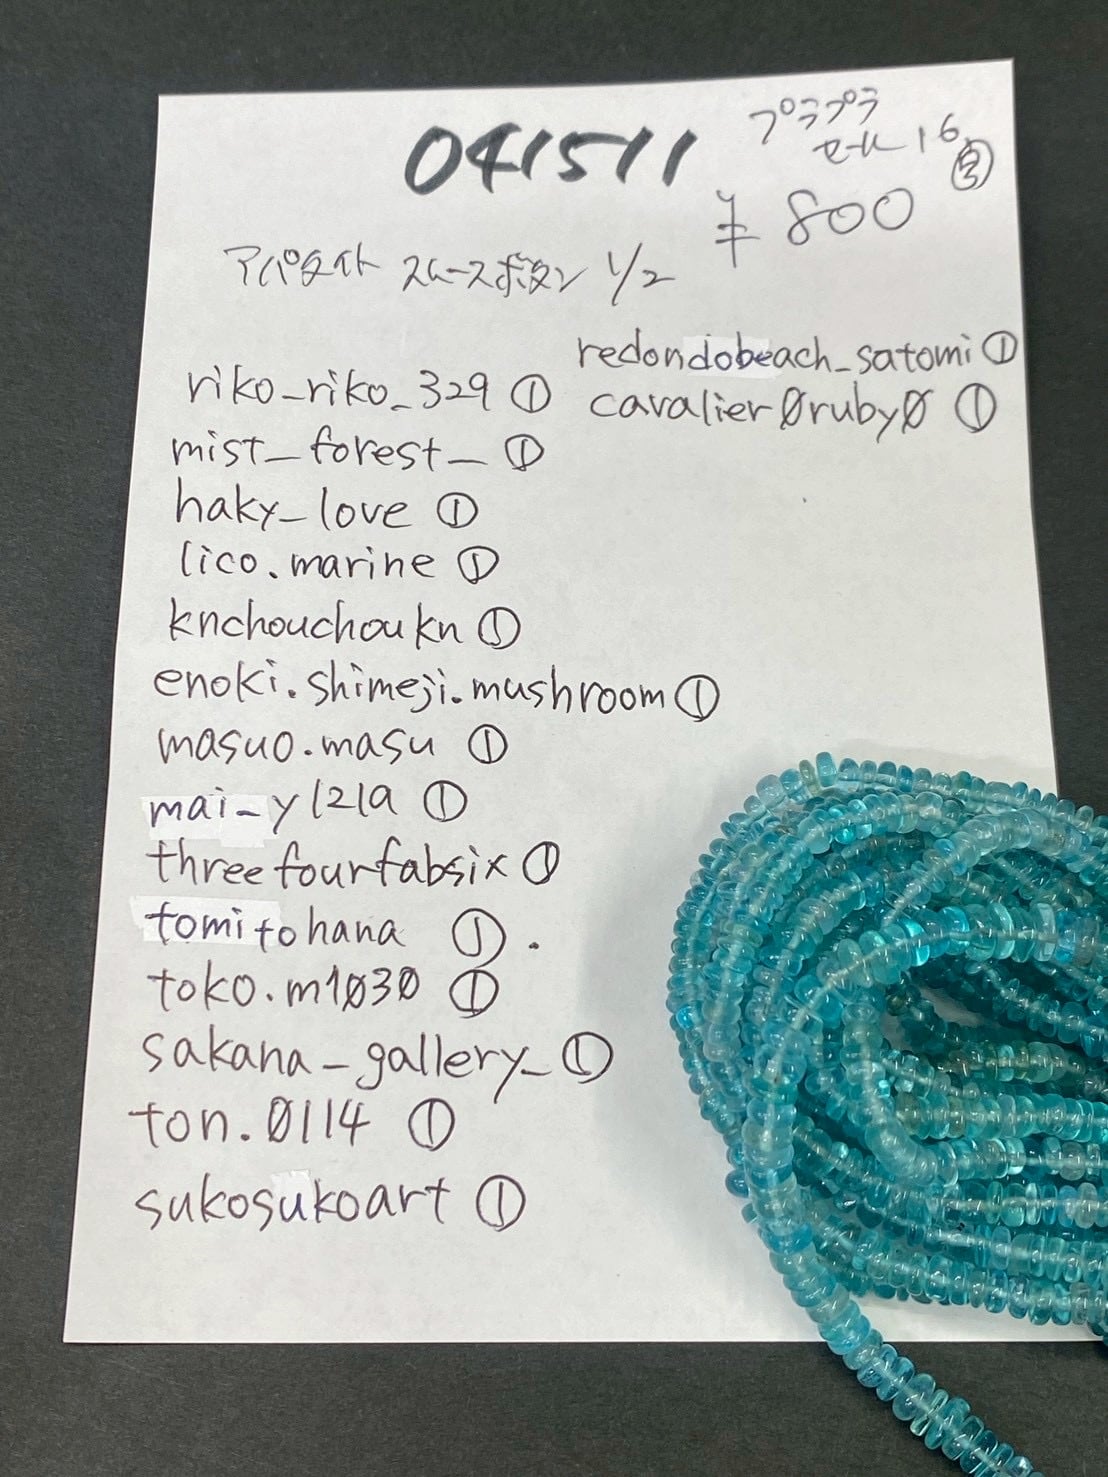 041511
プラプラ
セール16
¥800
アパタイト スムースボタン 1/2
riko_riko_329 ①
mist_forest_ ①
haky_love ①
lico.marine ①
knchouchoukn ①
enoki.shimeji.mushroom ①
masuo.masu ①
mai_y1219 ①
threefourfabsix ①
tomitohana ① .
toko.m1030 ①
sakana_gallery_ ①
ton.0114 ①
sukosukoart ①
redondobeach_satomi ①
cavalier0ruby0 ①